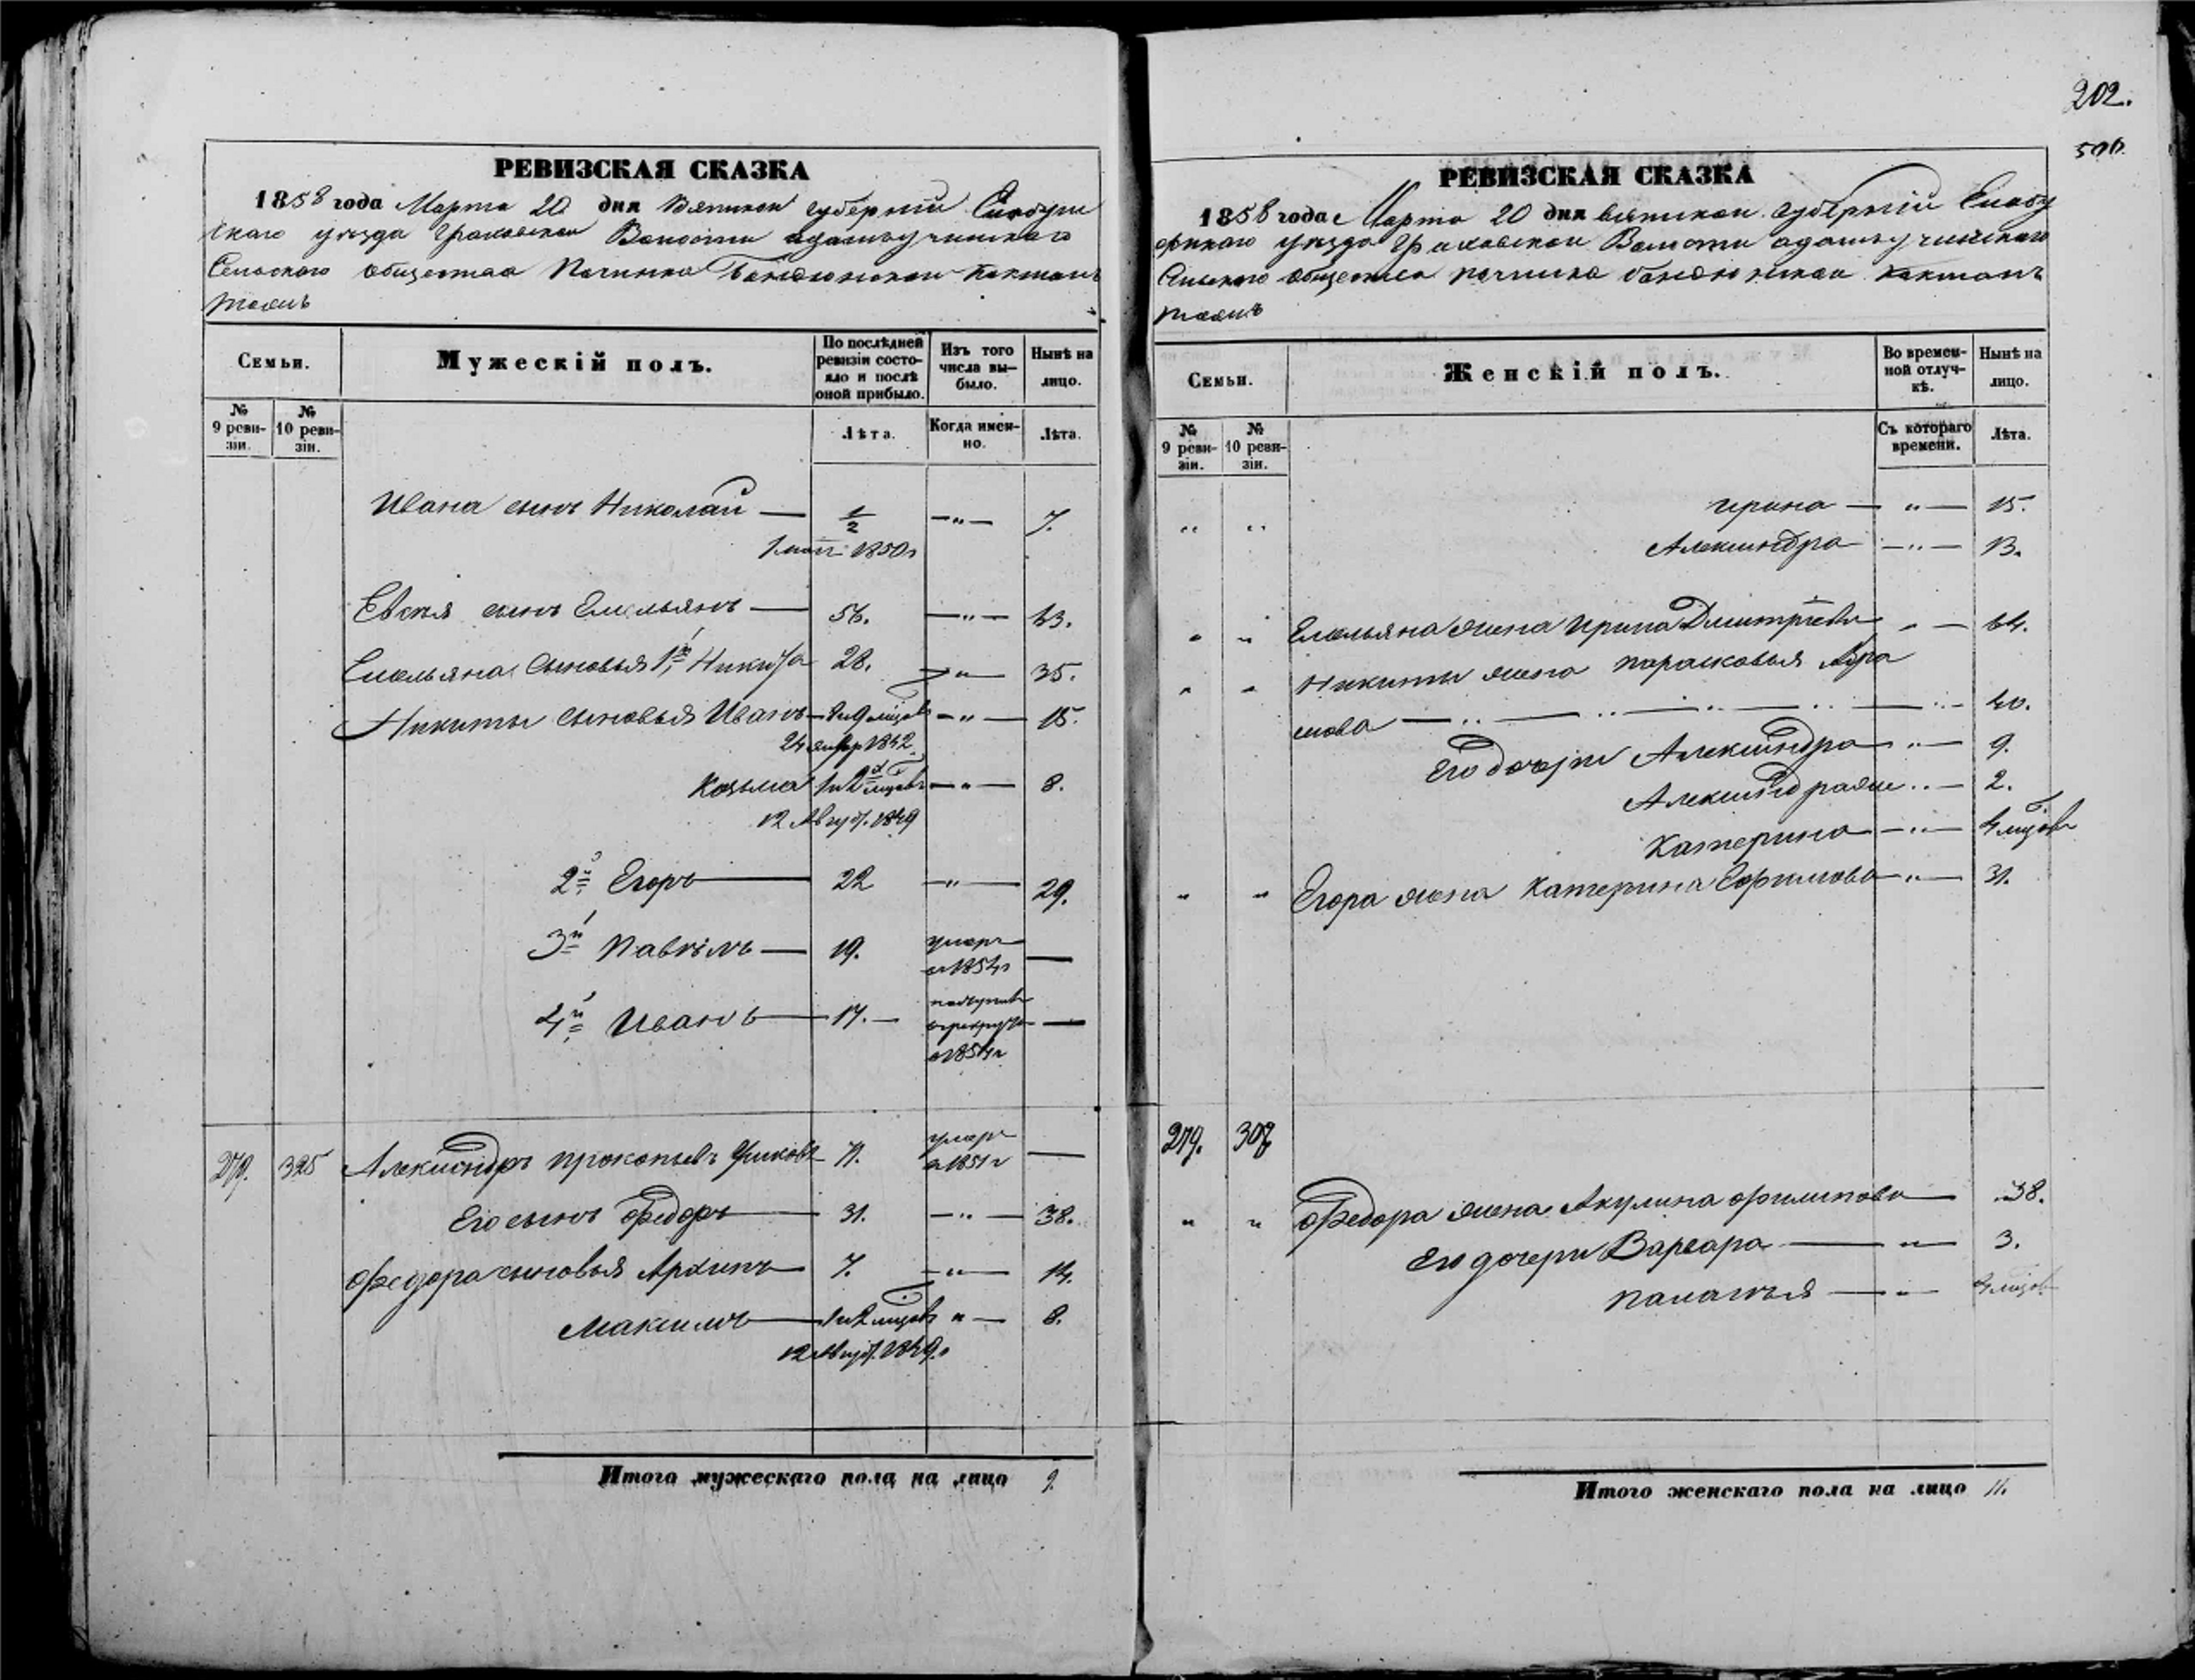 202.
РЕВИЗСКАЯ СКАЗКА
1858 года Марта 20 дня Вятской губерніи Елабуж
скаго уѣзда Граховской Волости
Сельскаго общества Починка Бондюжской
РЕВИЗСКАЯ СКАЗКА
1858 года Марта 20 дня вятской губерніи Елабу
уѣзда Граховской Волости
Сельскаго общества починка бондюжской
Семьи.
Мужескій полъ.
По послѣдней ревизіи состояло и послѣ оной прибыло.
Изъ того числа выбыло.
Нынѣ на лицо.
№ 9 ревизіи.
№ 10 ревизіи.
Лѣта.
Когда именно.
Лѣта.
Ивана сынъ Николай — 1/2 —"— 7.
1850
Евсея сынъ Емельянъ — 56. —"— 63.
Емельяна сыновья 1й Никита 28. " — 35.
Никиты сыновья Иванъ — 9 —"— 15.
24 1842
Козьма 1 и 2 —"— 8.
12 Август. 1849
2й Егоръ — 22 —"— 29.
3й — 19. умеръ —
1854
4й Иванъ — 14. —
279. 325 Александръ прокопьевъ 71. умеръ —
в 1851 г
Его сынъ Федоръ — 31. —"— 38.
Федора сыновья Архипъ 7. —"— 14.
Максимъ — 1 и 2 " — 8.
12 Август. 1849.
Итого мужескаго пола на лицо 9.
Семьи.
Женскій полъ.
Во временной отлучкѣ.
Нынѣ на лицо.
№ 9 ревизіи.
№ 10 ревизіи.
Съ котораго времени.
Лѣта.
ирина — " — 15.
Александра —"— 13.
" " Емельяна жена Ирина Дмитріева " — 64.
" " Никиты жена парасковья Абра
мова — " — 40.
Его дочери Александра " — 9.
2.
Катерина —"— 4
" " Егора жена Катерина Ефимова " — 31.
279. 307
" " Федора жена Акулина филипова — 38.
Его дочери Варвара — " — 3.
— " — 4
Итого женскаго пола на лицо 11.